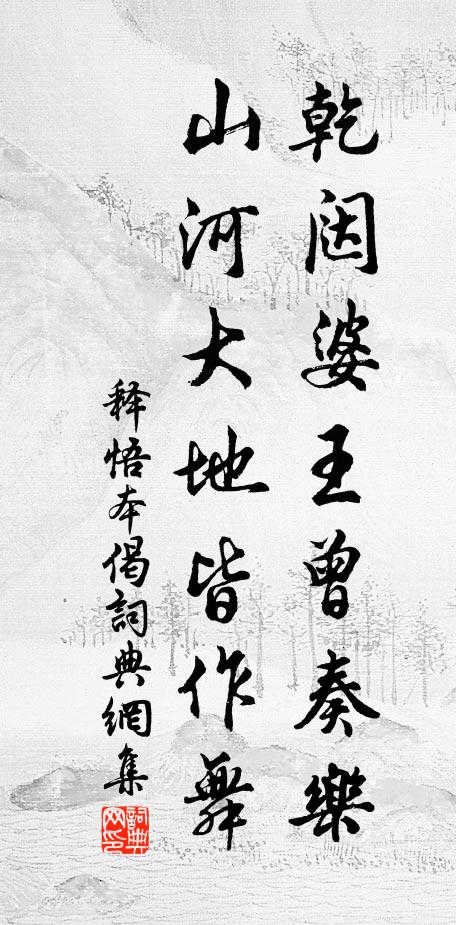 乾闼婆王曾奏樂
山河大地皆作舞
释悟本偈詞典網集
詞典网印